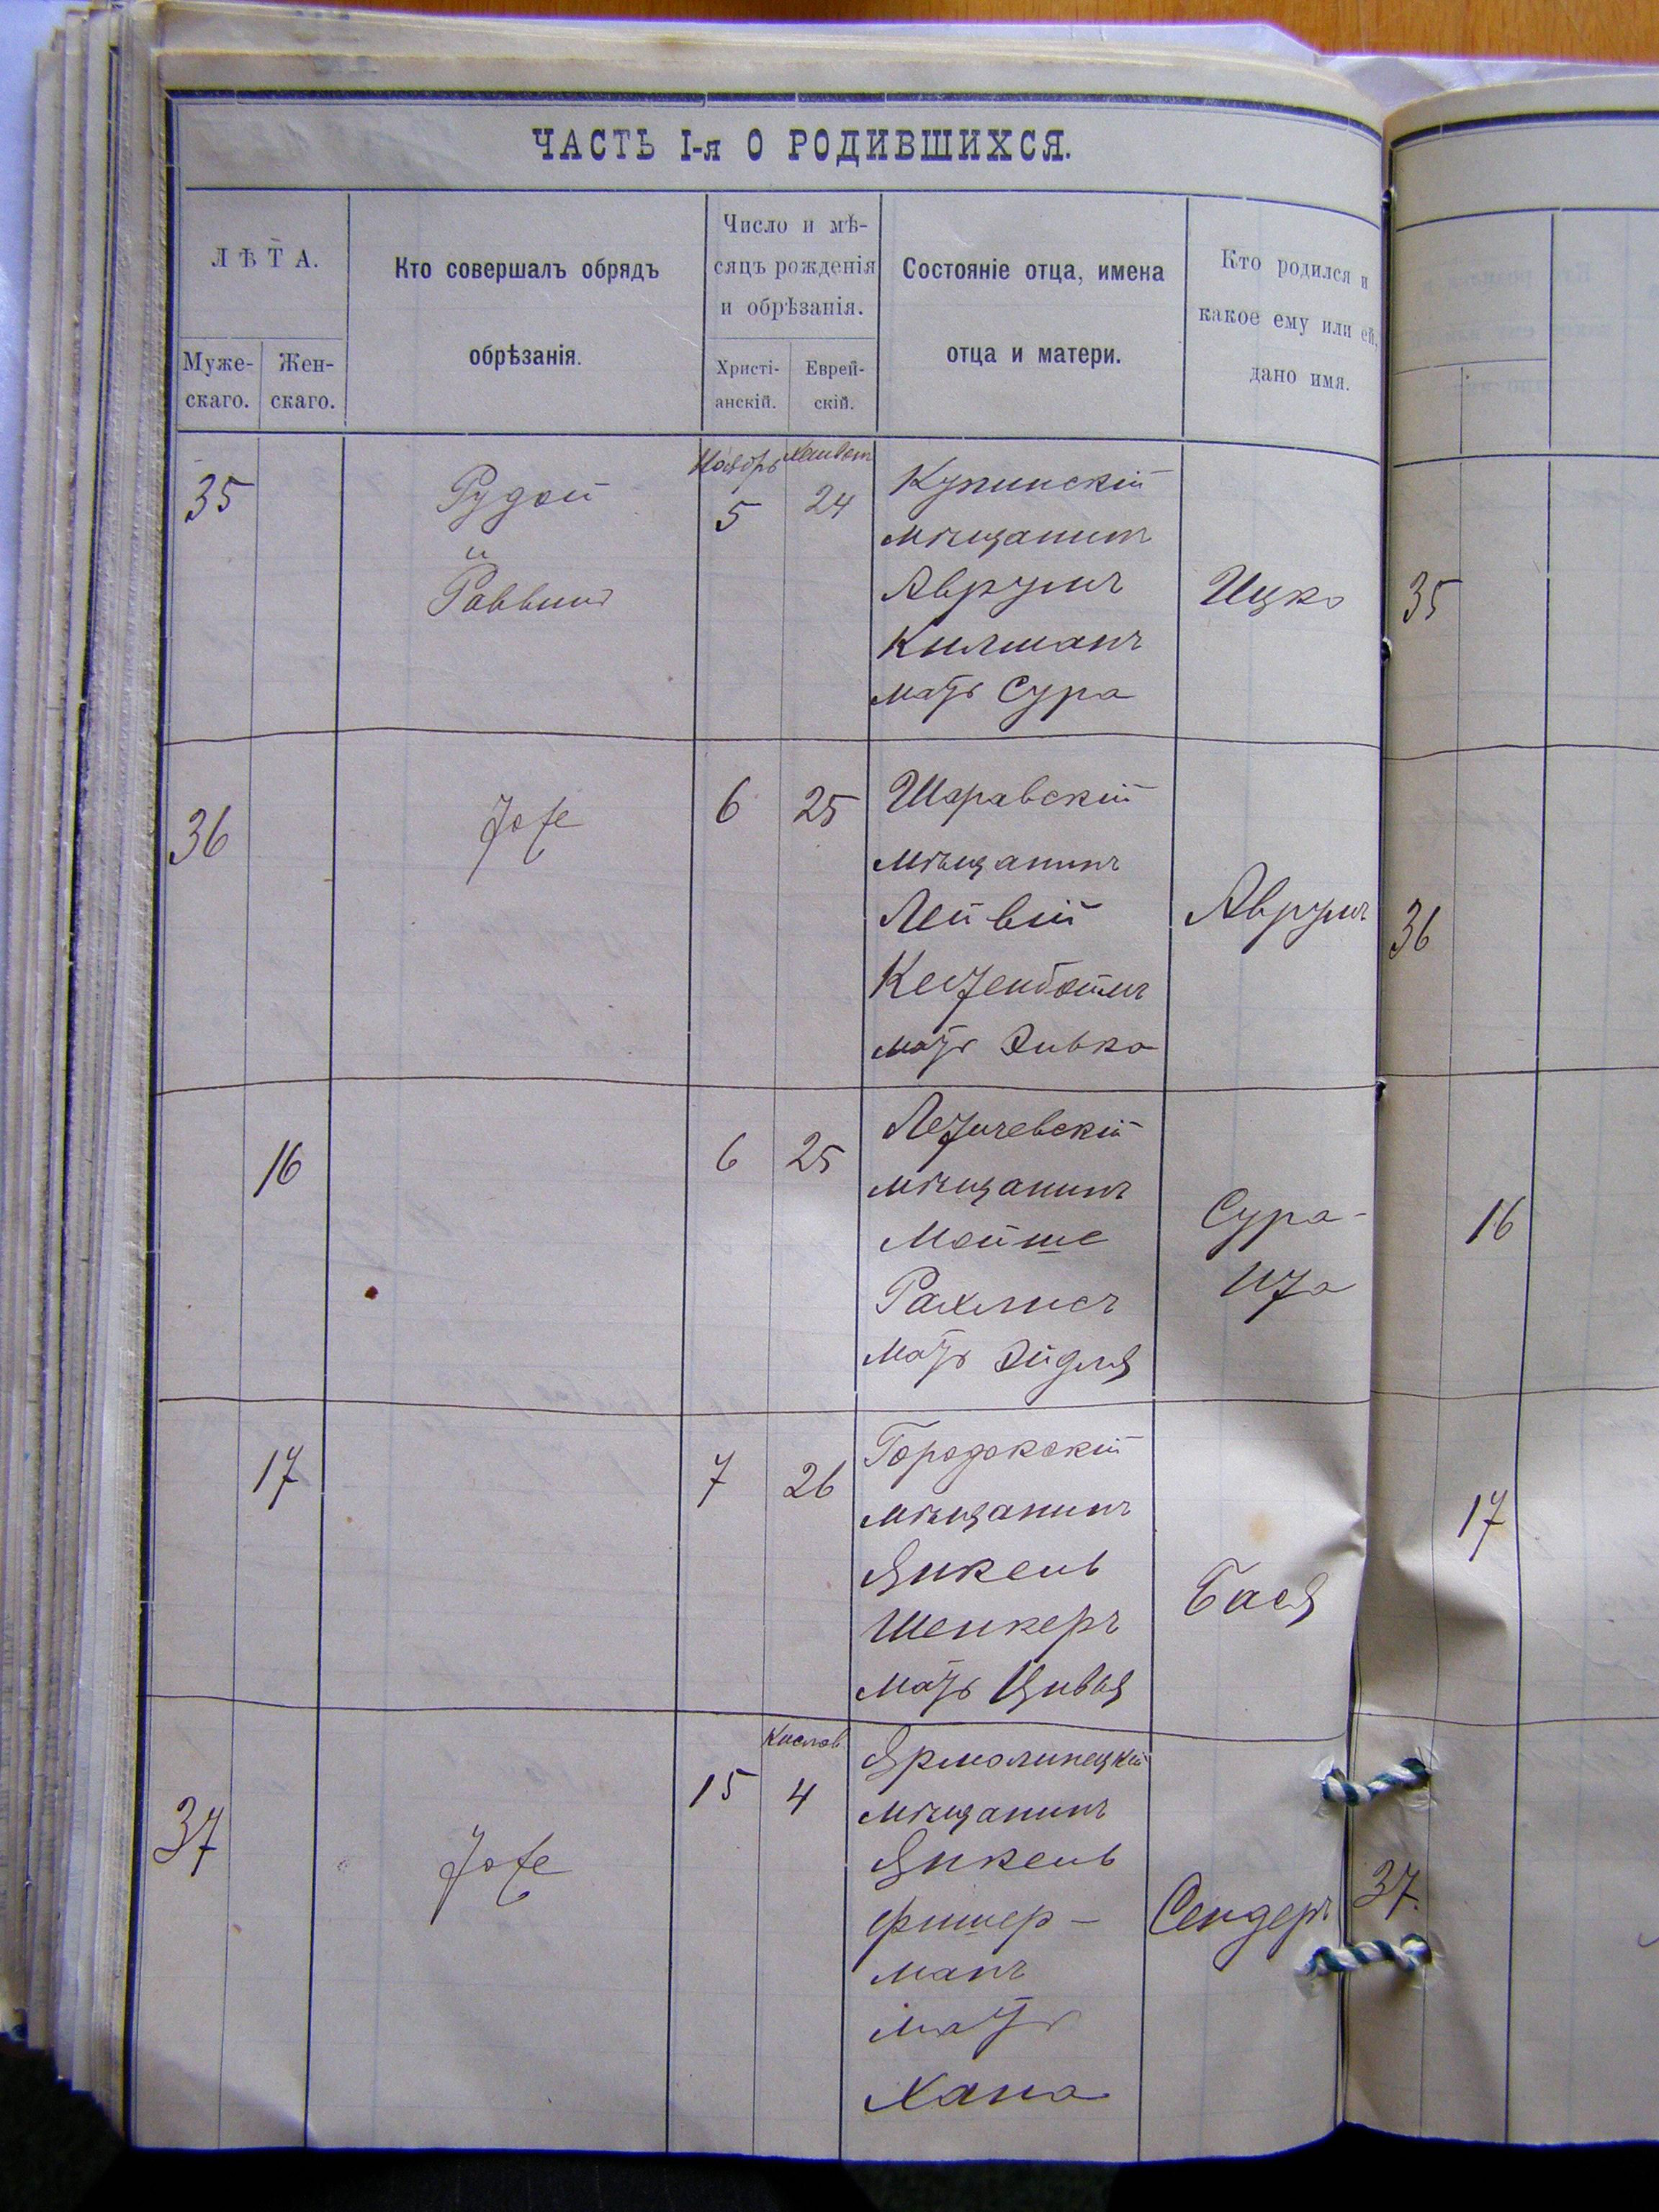 ЧАСТЬ I-я О РОДИВШИХСЯ.
ЛѢТА.
Муже-
скаго.
Жен-
скаго.
Кто совершалъ обрядъ
обрѣзанія.
Число и мѣ-
сяцъ рожденія
и обрѣзанія.
Христі-
анскій.
Еврей-
скій.
Состояніе отца, имена
отца и матери.
Кто родился и
какое ему или ей,
дано имя.
35
Рудой
и
Раввинъ
Ноябрь
5
Хешвон
24
Купинскій
мѣщанинъ
Аврумъ
Килманъ
мать Сура
Ицко
35
36
Тоже
6
25
Шаравскій
мѣщанинъ
Лейвій
мать Зивка
Аврумъ
36
16
6
25
Летичевскій
мѣщанинъ
Мойше
Рахлисъ
мать Эйдля
Сура-
Ита
16
17
7
26
Городокскій
мѣщанинъ
Янкель
Шенкеръ
мать Цивья
Бася
17
37
Тоже
15
Кислов
4
Ярмолинецкій
мѣщанинъ
Янкель
Фишер-
манъ
мать
Хана
Сендеръ
37.